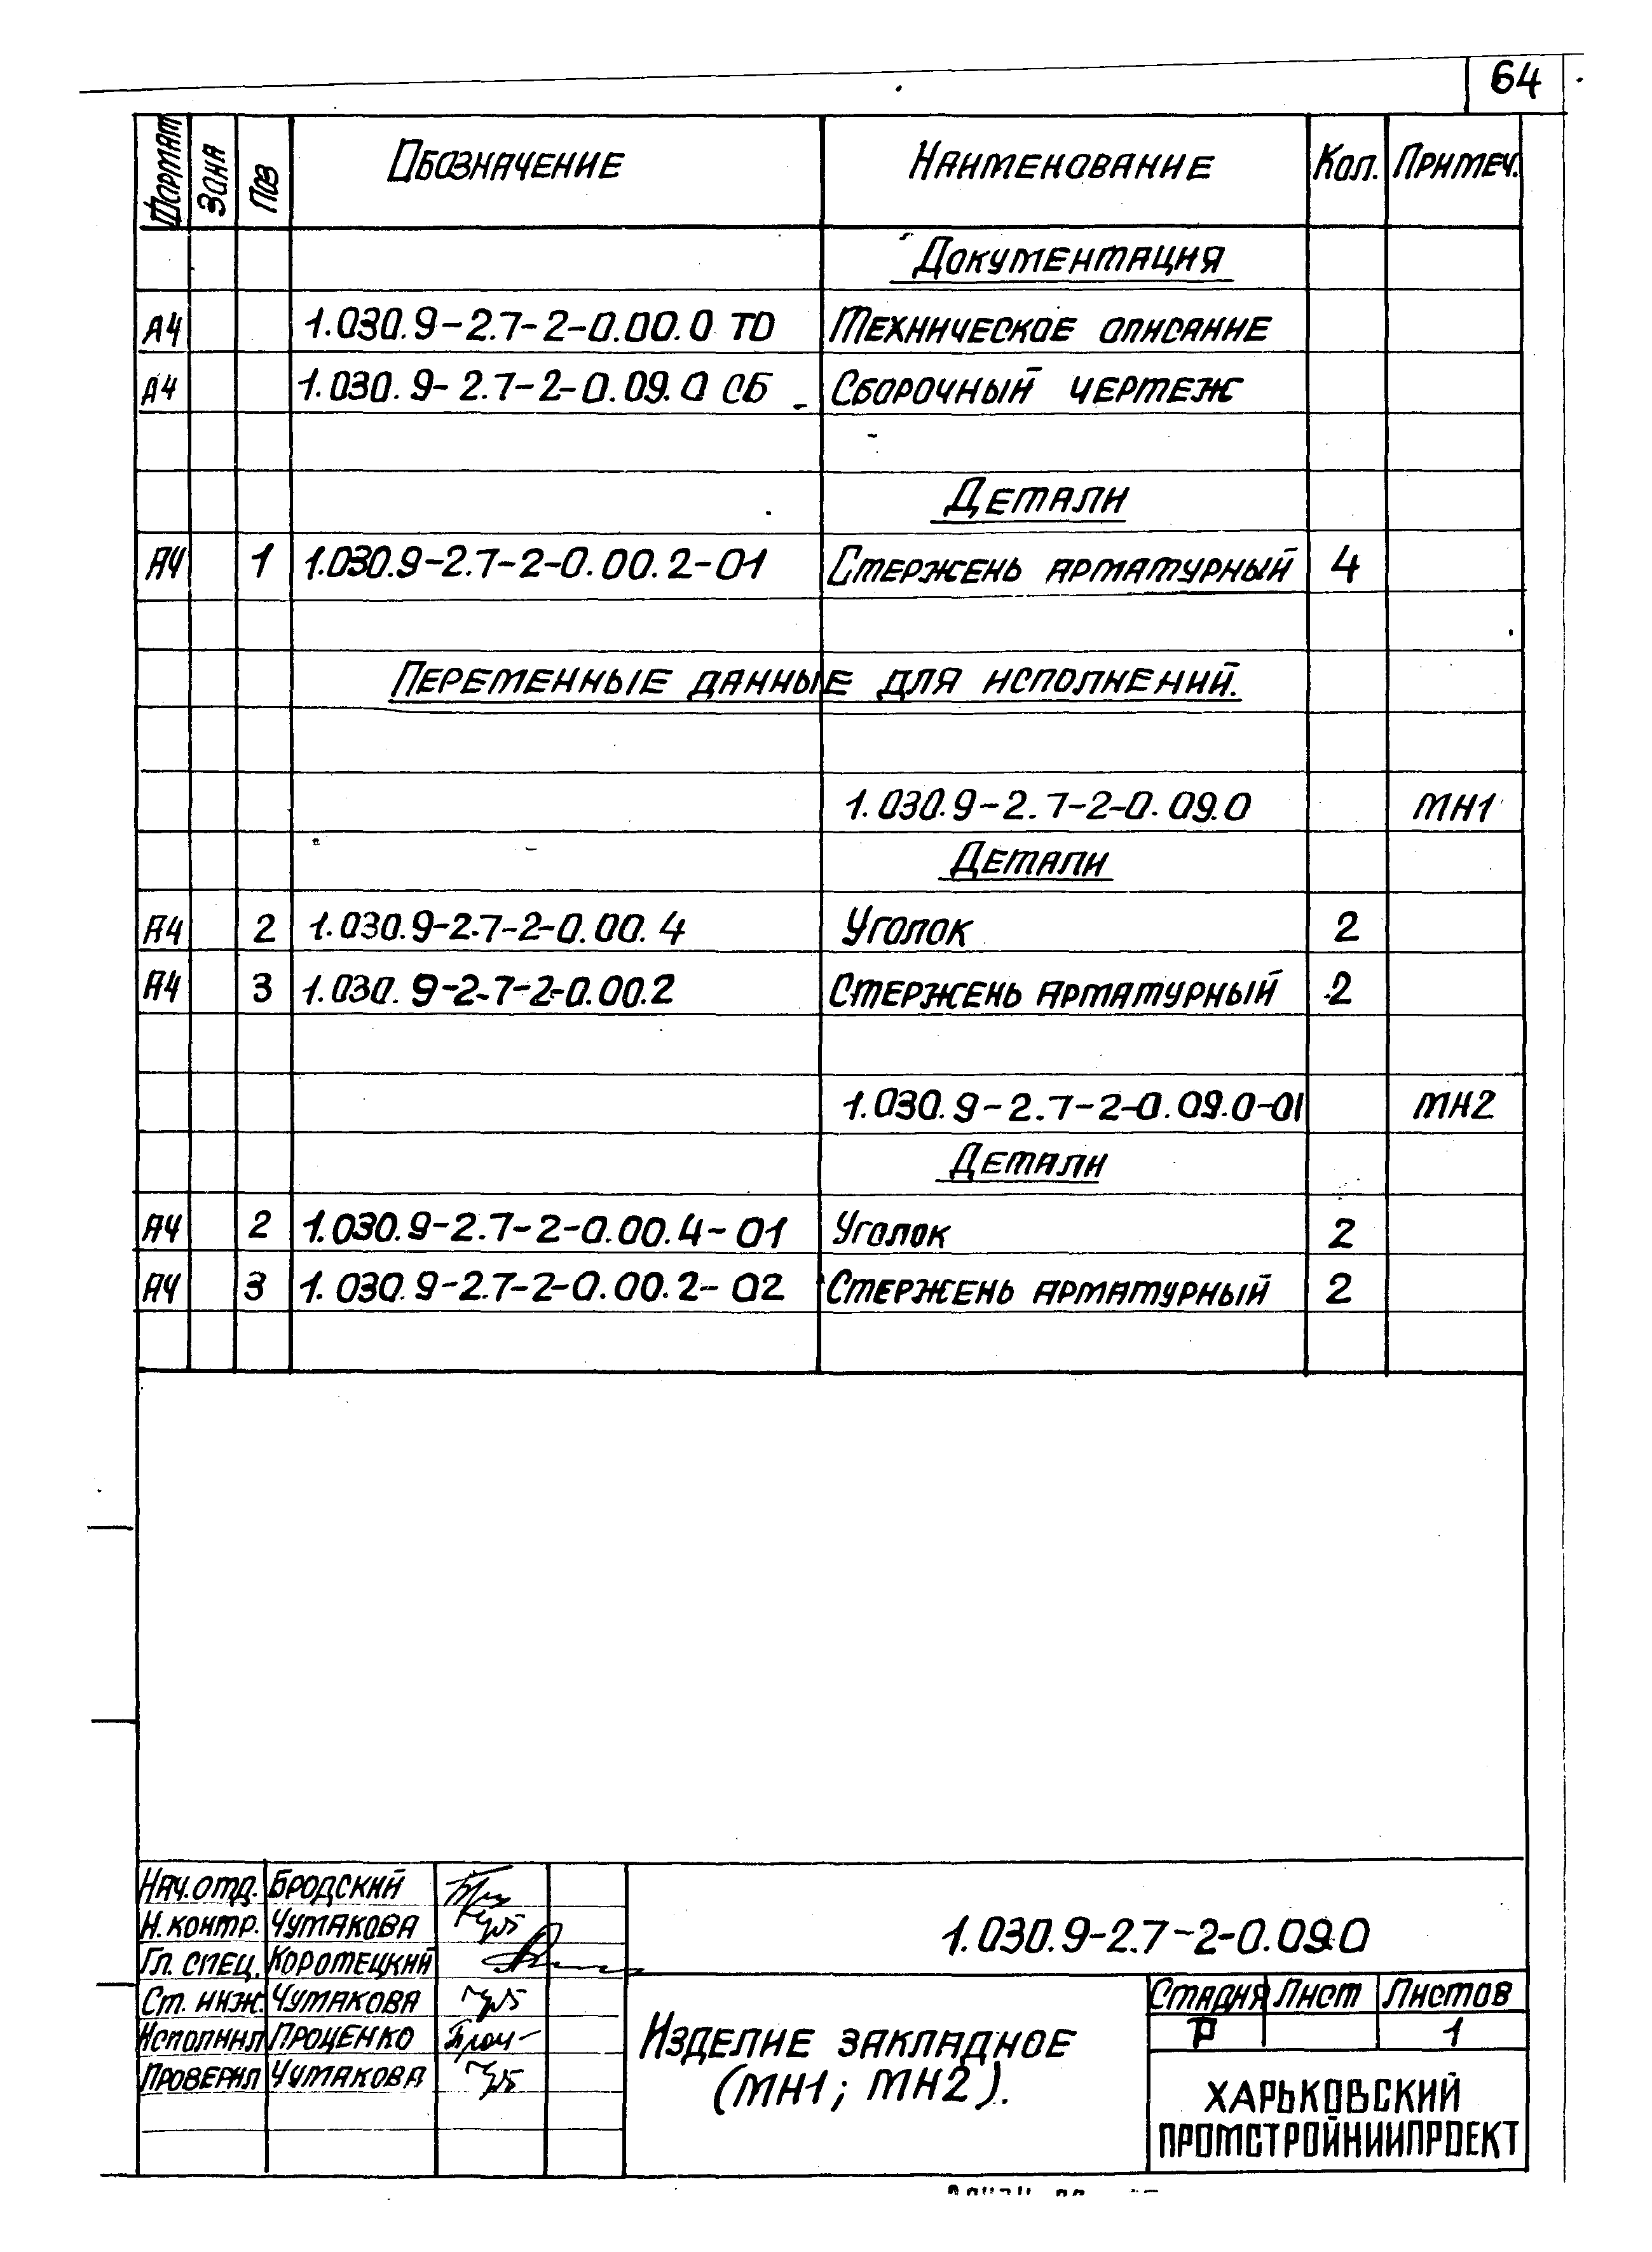 64
Формат Зона Поз Обозначение Наименование Кол. Примеч.
Документация
А4 1.030.9-2.7-2-0.00.0 ТО Техническое описание
А4 1.030.9-2.7-2-0.09.0 СБ Сборочный чертеж
Детали
А4 1 1.030.9-2.7-2-0.00.2-01 Стержень арматурный 4
Переменные данные для исполнений.
1.030.9-2.7-2-0.09.0 МН1
Детали
А4 2 1.030.9-2.7-2-0.00.4 Уголок 2
А4 3 1.030.9-2.7-2-0.00.2 Стержень арматурный 2
1.030.9-2.7-2-0.09.0-01 МН2
Детали
А4 2 1.030.9-2.7-2-0.00.4-01 Уголок 2
А4 3 1.030.9-2.7-2-0.00.2-02 Стержень арматурный 2
Нач.отд. Бродский
Н.контр. Чумакова
Гл. спец. Коротецкий
Ст. инж. Чумакова
Исполнил Проценко
Проверил Чумакова
1.030.9-2.7-2-0.09.0
Изделие закладное
(МН1; МН2).
Стадия Лист Листов
Р 1
ХАРЬКОВСКИЙ
ПРОМСТРОЙНИИПРОЕКТ